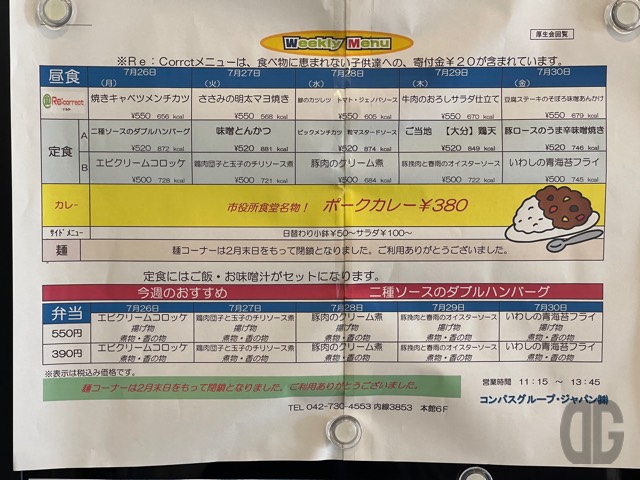 厚生会回覧
Weekly Menu
※Re:Corrctメニューは、食べ物に恵まれない子供達への、寄付金￥20が含まれています。
昼食 7月26日 7月27日 7月28日 7月29日 7月30日
(月) (火) (水) (木) (金)
Re:correct 焼きキャベツメンチカツ ささみの明太マヨ焼き 鯵のカツレツ トマト・ジェノバソース 牛肉のおろしサラダ仕立て 豆腐ステーキのそぼろ味噌あんかけ
¥550 656 kcal ¥550 668 kcal ¥550 kcal ¥550 670 kcal ¥550 679 kcal
定食 A 二種ソースのダブルハンバーグ 味噌とんかつ ビックメンチカツ 粒マスタードソース ご当地 【大分】鶏天 豚ロースのうま辛味噌焼き
¥520 872 kcal ¥520 881 kcal ¥520 874 kcal ¥520 849 kcal ¥520 746 kcal
B エビクリームコロッケ 鶏肉団子と玉子のチリソース煮 豚肉のクリーム煮 豚挽肉と春雨のオイスターソース いわしの青海苔フライ
¥500 728 kcal ¥500 721 kcal ¥500 684 kcal ¥500 722 kcal ¥500 745 kcal
カレー 市役所食堂名物! ポークカレー¥380
サイドメニュー 日替わり小鉢¥50～サラダ¥100～
麺 麺コーナーは2月末日をもって閉鎖となりました。ご利用ありがとうございました。
定食にはご飯・お味噌汁がセットになります。
今週のおすすめ 二種ソースのダブルハンバーグ
弁当 7月26日 7月27日 7月28日 7月29日 7月30日
550円 エビクリームコロッケ 鶏肉団子と玉子のチリソース煮 豚肉のクリーム煮 豚挽肉と春雨のオイスターソース いわしの青海苔フライ
揚げ物 揚げ物 揚げ物 揚げ物 揚げ物
390円 煮物・香の物 煮物・香の物 煮物・香の物 煮物・香の物 煮物・香の物
※表示は税込み価格です。
麺コーナーは2月末日をもって閉鎖となりました。ご利用ありがとうございました。
営業時間 11:15 ～ 13:45
コンパスグループ・ジャパン㈱
TEL 042-730-4553 内線3853 本館6F
DG